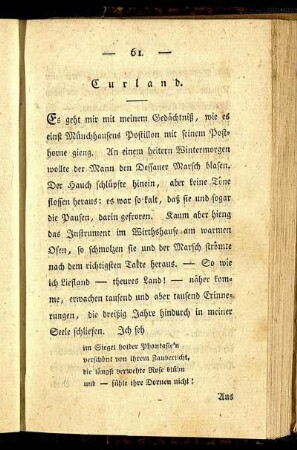 — 61. —
Curland.
Es geht mir mit meinem Gedächtniß, wie es
einst Münchhausens Postillon mit seinem Post-
horne gieng. An einem heitern Wintermorgen
wollte der Mann den Dessauer Marsch blasen.
Der Hauch schlüpfte hinein, aber keine Töne
flossen heraus: es war so kalt, daß sie und sogar
die Pausen, darin gefroren. Kaum aber hieng
das Instrument im Wirthshause am warmen
Ofen, so schmolzen sie und der Marsch strömte
nach dem richtigsten Takte heraus. — So wie
ich Liefland — theures Land! — näher kom-
me, erwachen tausend und aber tausend Erinne-
rungen, die dreißig Jahre hindurch in meiner
Seele schliefen. Ich seh
im Siegel holder Phantasie'n
verschönt von ihrem Zauberlicht,
die längst verwehte Rose blühn
und — fühle ihre Dornen nicht!
Aus